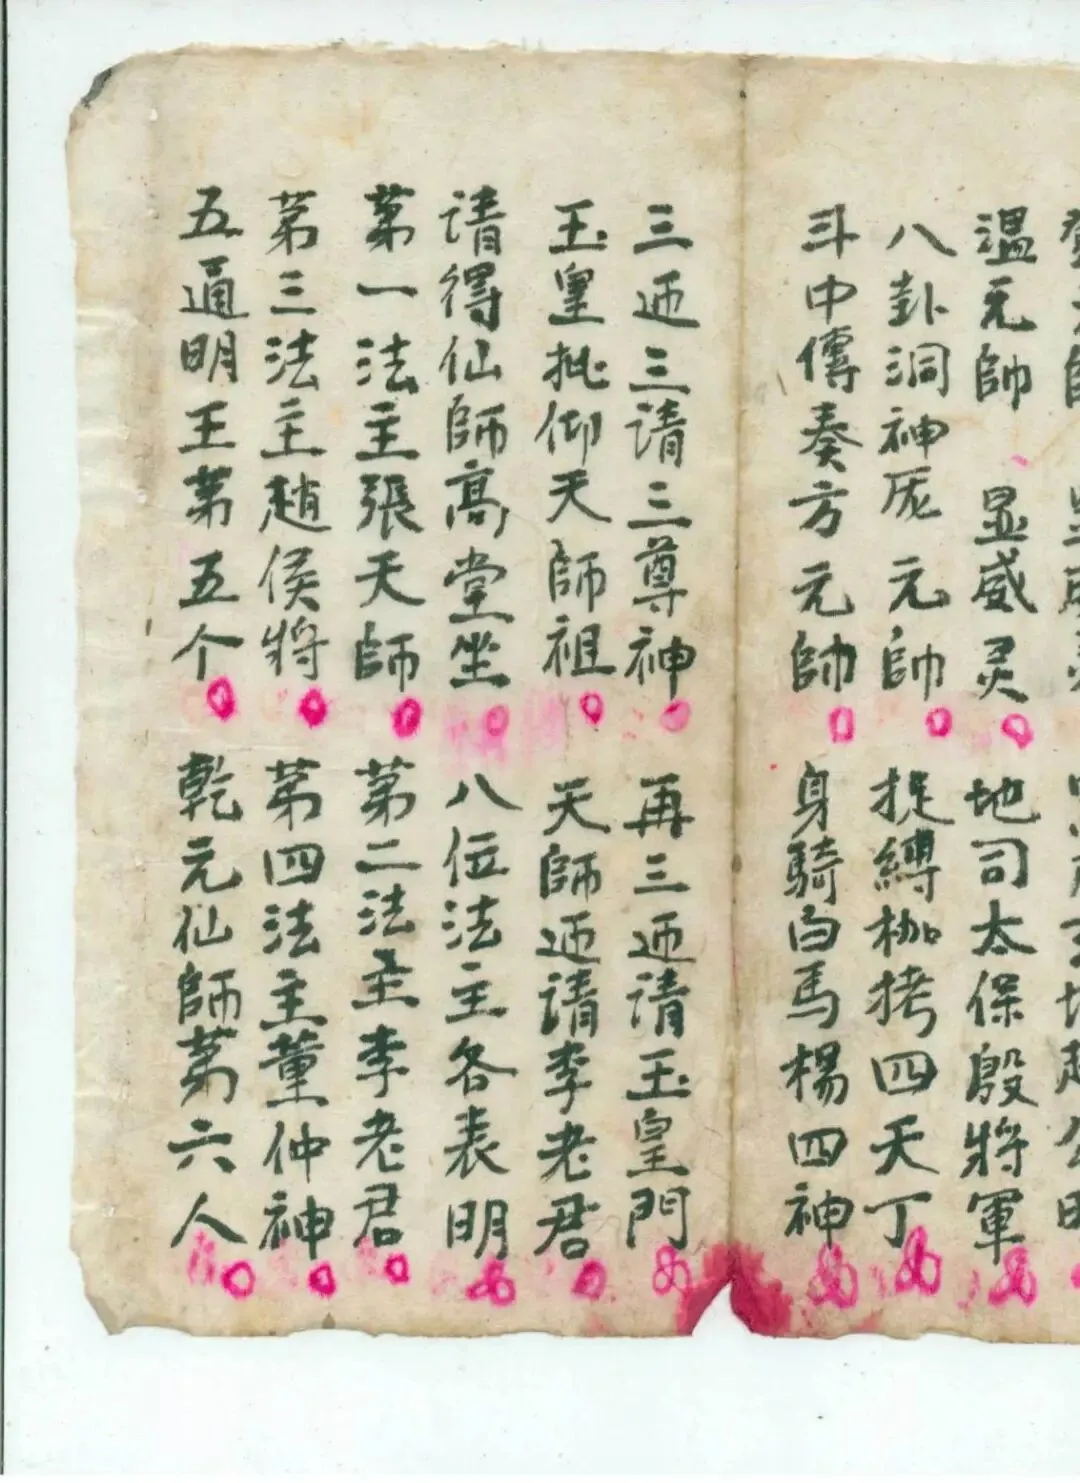 溫元帥 显威灵 地司太保殷將軍
八卦洞神厐元帥 捉縛枷拷四天丁
斗中傳奏方元帥 身騎白馬楊四神
三迊三请三尊神 再三迊请玉皇門
玉皇批仰天師祖 天師迊请李老君
请得仙師高堂坐 八位法主各表明
苐一法主張天師 苐二法主李老君
苐三法主趙侯將 苐四法主董仲神
五通明王苐五个 乾元仙師苐六人